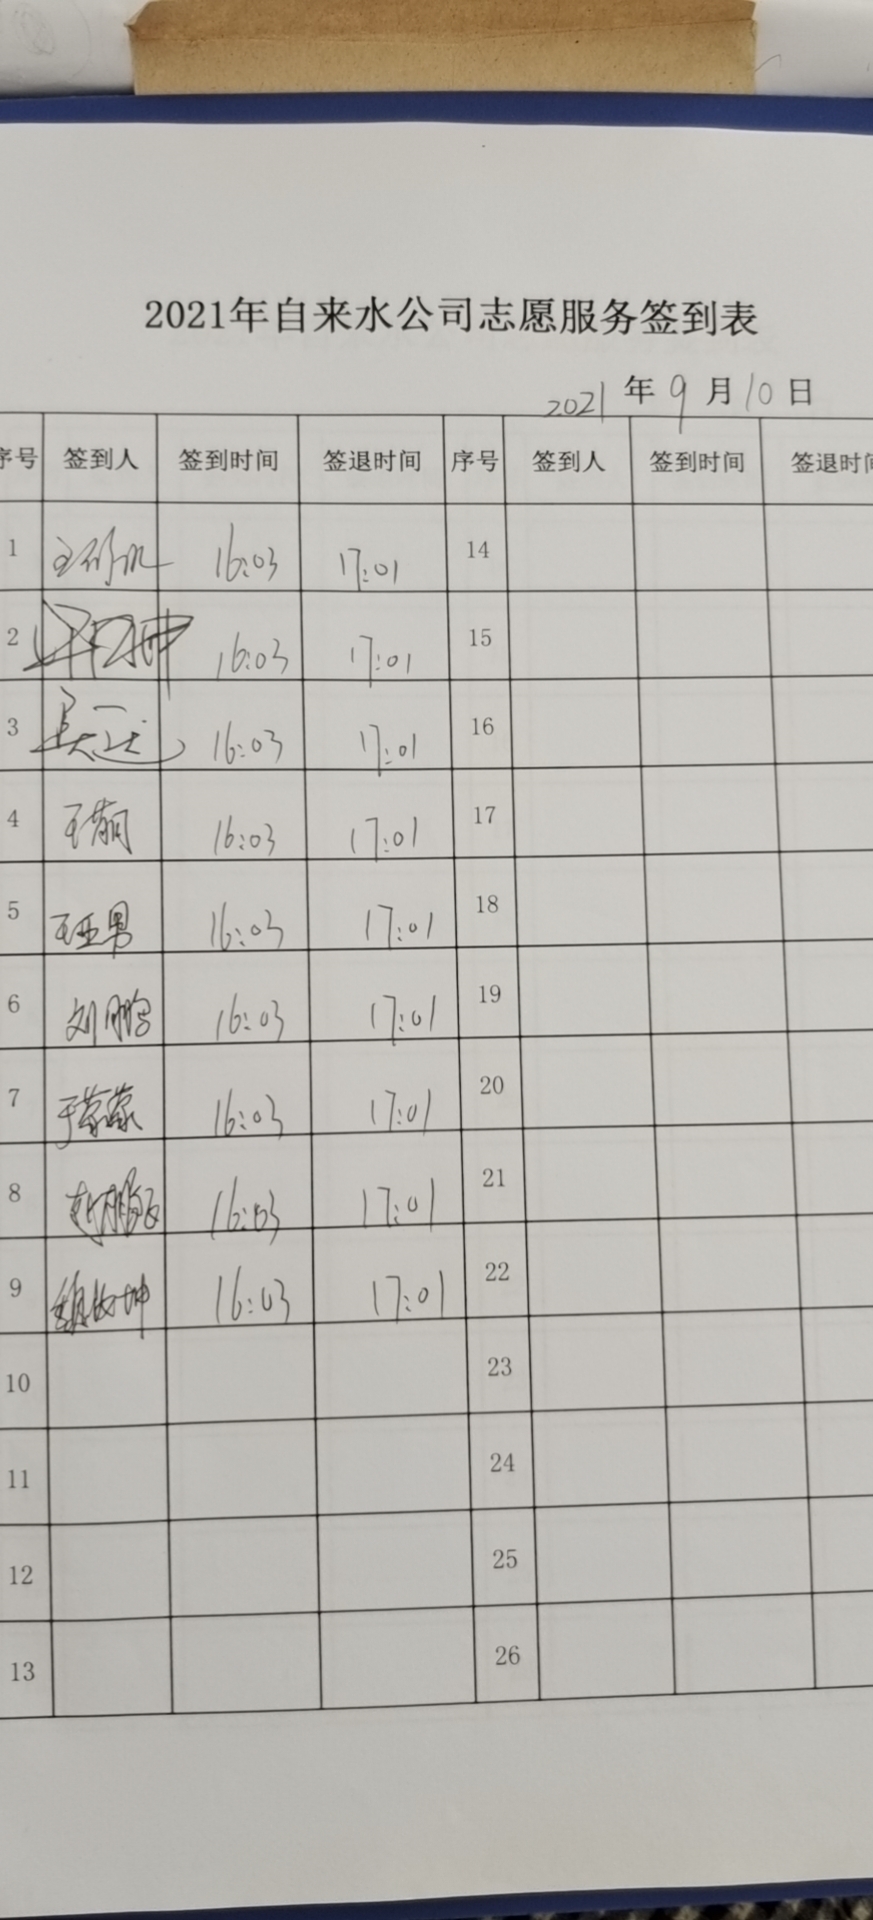 2021年自来水公司志愿服务签到表
2021 年 9 月 10 日
序号 签到人 签到时间 签退时间 序号 签到人 签到时间 签退时间
1 16:03 17:01 14
2 16:03 17:01 15
3 16:03 17:01 16
4 16:03 17:01 17
5 王亚男 16:03 17:01 18
6 刘鹏 16:03 17:01 19
7 于蒙蒙 16:03 17:01 20
8 16:03 17:01 21
9 16:03 17:01 22
10 23
11 24
12 25
13 26